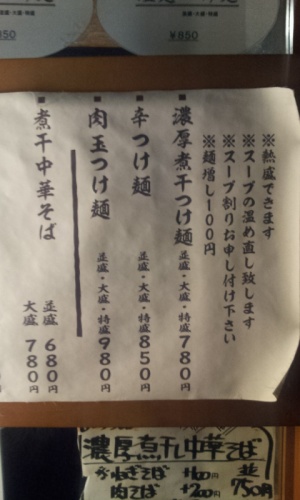 ¥850
※熱盛できます
※スープの温め直し致します
※スープ割りお申し付け下さい
※麺増し100円
■濃厚煮干つけ麺 並盛・大盛・特盛780円
■辛つけ麺 並盛・大盛・特盛850円
■肉玉つけ麺 並盛・大盛・特盛980円
■煮干中華そば 並盛680円
大盛780円
濃厚煮干し中華そば
ねぎそば +100円
肉そば +200円
並750円